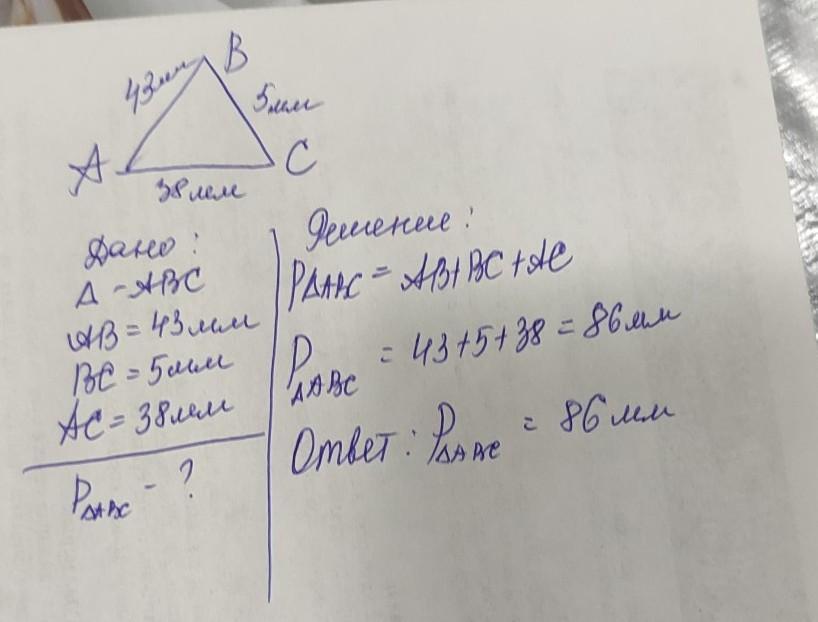 B
43мм
5мм
A
C
38мм
Дано:
Δ - ABC
AB = 43мм
BC = 5мм
AC = 38мм
PΔABC - ?
Решение:
PΔABC = AB+BC+AC
PΔABC = 43+5+38 = 86мм
Ответ: PΔABC = 86мм